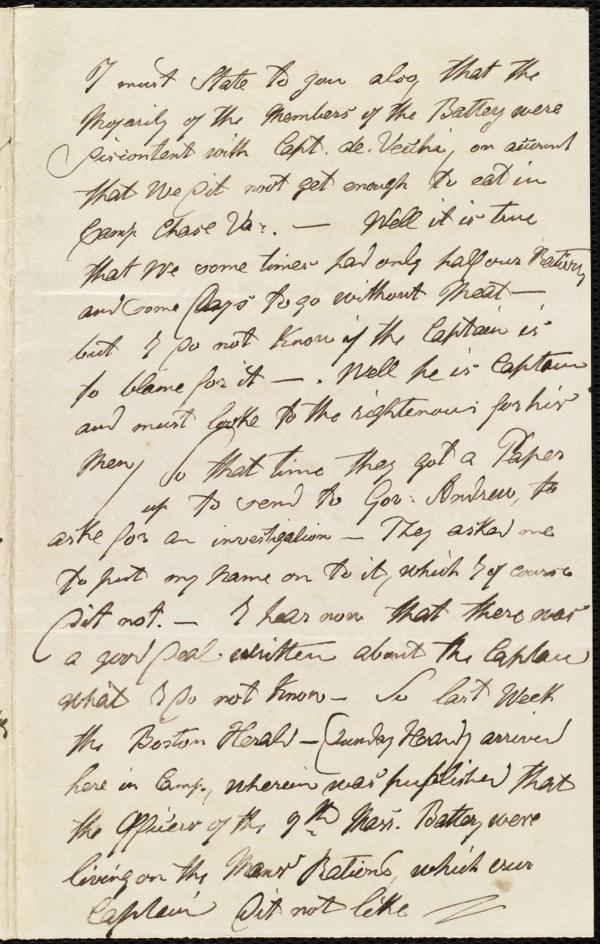 I must State to you also, that the
Majority of the Members of the Battery were
discontent with Capt. de. Vecchi, on account
that We dit noot get enough to eat in
Camp Chase Va:. — Well it is true
that We some times had only half our Rations,
and some Days to go without Meat —
but I do not Know if the Captain is
to blame for it — . Well he is Captain
and must looke to the rightenous for his
Men, So that time they got a Paper
up to send to Gov: Andrew, to
aske for an investigation — They asked me
to put my Name on to it, which I of course
dit not. — I hear now that there was
a good deal written about the Captain
what I do not Know — So last Week
the Boston Herald — (Sunday Herald) arrived
here in Camp, wherein was publisched that
the Officers of the 9th Mass. Battery were
living on the Mans' Rations, which our
Captain dit not like